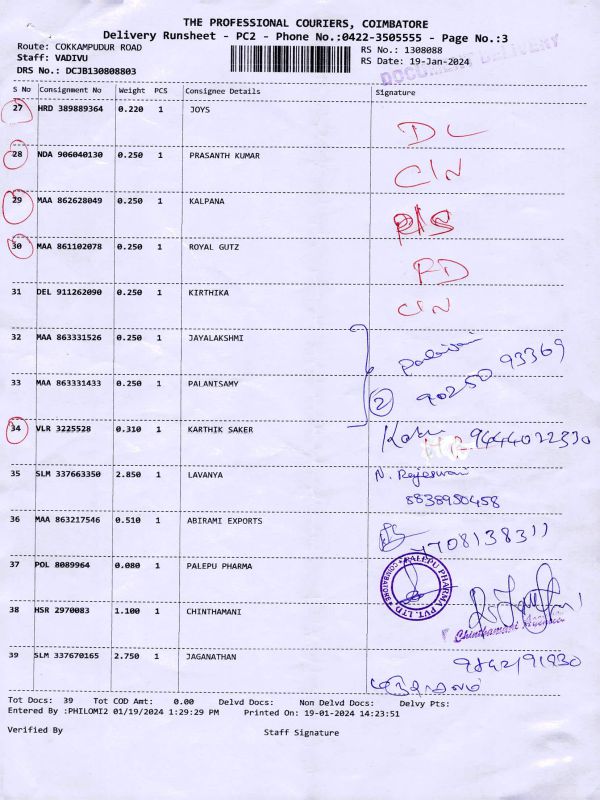 THE PROFESSIONAL COURIERS, COIMBATORE
Delivery Runsheet - PC2 - Phone No.:0422-3505555 - Page No.:3
Route: COKKAMPUDUR ROAD
RS No.: 1308088
Staff: VADIVU
RS Date: 19-Jan-2024
DRS No.: DCJB130808803
DOCUMENT DELIVERY
S No Consignment No Weight PCS Consignee Details Signature
27 HRD 389889364 0.220 1 JOYS DL
28 NDA 906040130 0.250 1 PRASANTH KUMAR CIN
29 MAA 862628049 0.250 1 KALPANA
30 MAA 861102078 0.250 1 ROYAL GUTZ
31 DEL 911262090 0.250 1 KIRTHIKA CIN
32 MAA 863331526 0.250 1 JAYALAKSHMI
33 MAA 863331433 0.250 1 PALANISAMY 2 90250 93369
34 VLR 3225528 0.310 1 KARTHIK SAKER 9444022330
35 SLM 337663350 2.850 1 LAVANYA N. Rajeswari
8838950458
36 MAA 863217546 0.510 1 ABIRAMI EXPORTS 7708138311
37 POL 8089964 0.080 1 PALEPU PHARMA PALEPU PHARMA PVT. LTD. COIMBATORE
38 HSR 2970083 1.100 1 CHINTHAMANI Chinthamani Agencies
39 SLM 337670165 2.750 1 JAGANATHAN 9842191930
Tot Docs: 39 Tot COD Amt: 0.00 Delvd Docs: Non Delvd Docs: Delvy Pts:
Entered By :PHILOMI2 01/19/2024 1:29:29 PM Printed On: 19-01-2024 14:23:51
Verified By Staff Signature